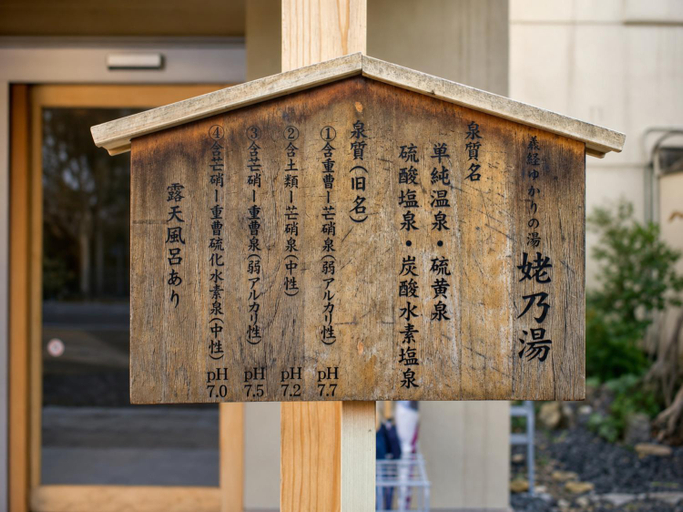 義経ゆかりの湯 姥乃湯
泉質名
単純温泉・硫黄泉
硫酸塩泉・炭酸水素塩泉
泉質(旧名)
①含重曹ー芒硝泉(弱アルカリ性) pH7.7
②含土類ー芒硝泉(中性) pH7.2
③含芒硝ー重曹泉(弱アルカリ性) pH7.5
④含芒硝ー重曹硫化水素泉(中性) pH7.0
露天風呂あり